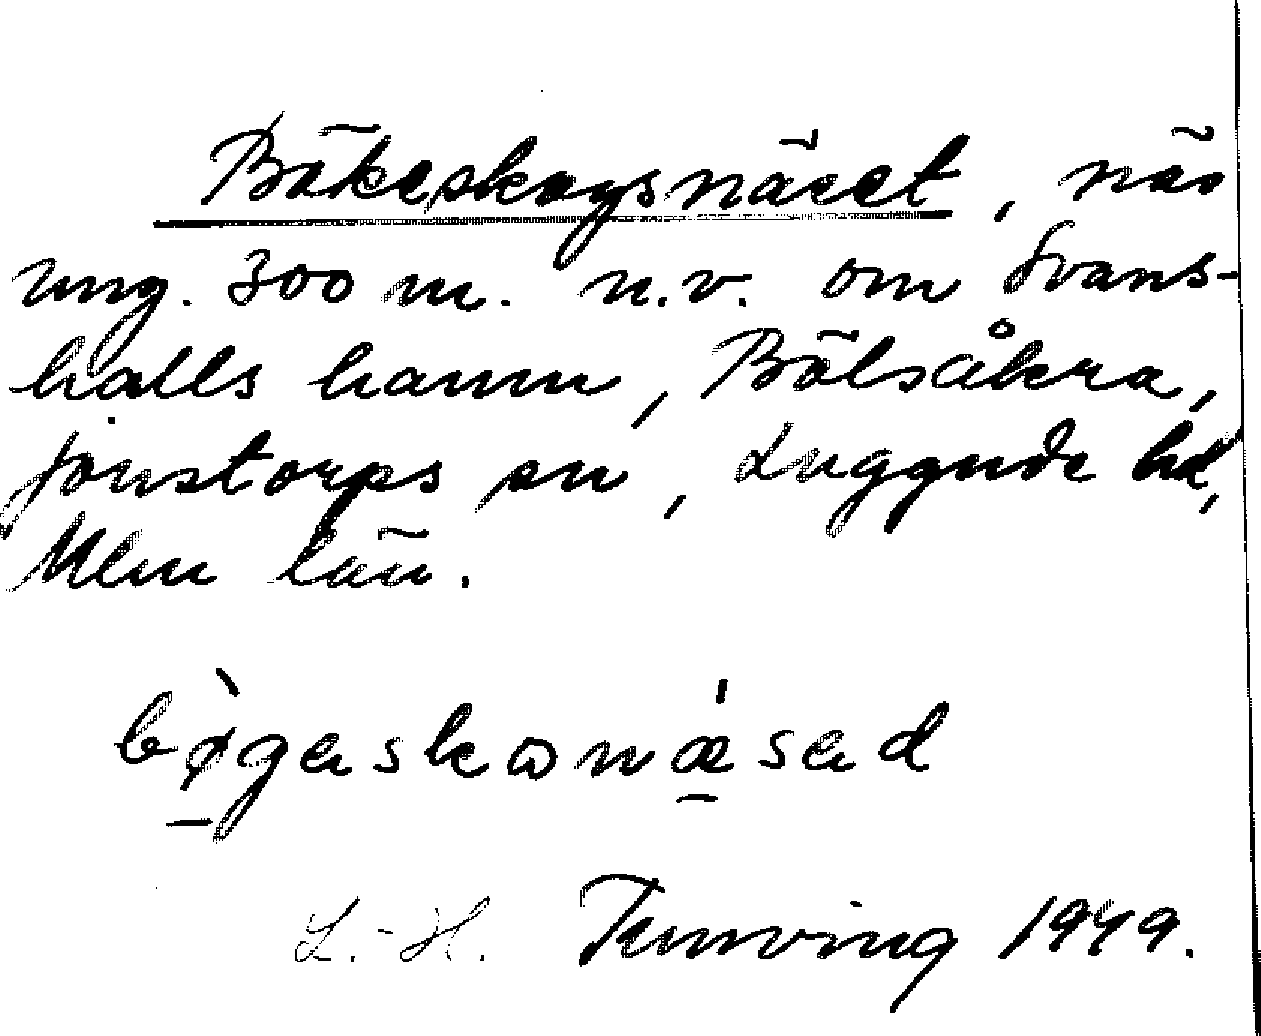 Bökeskogsnäset, näs
ung. 300 m. n.v. om Svans-
halls hamn, Bölsåkra,
Jonstorps sn, Luggude hd,
Mlm län.
bø̀geskɷnǽsed
L.-H. Tunving 1949.